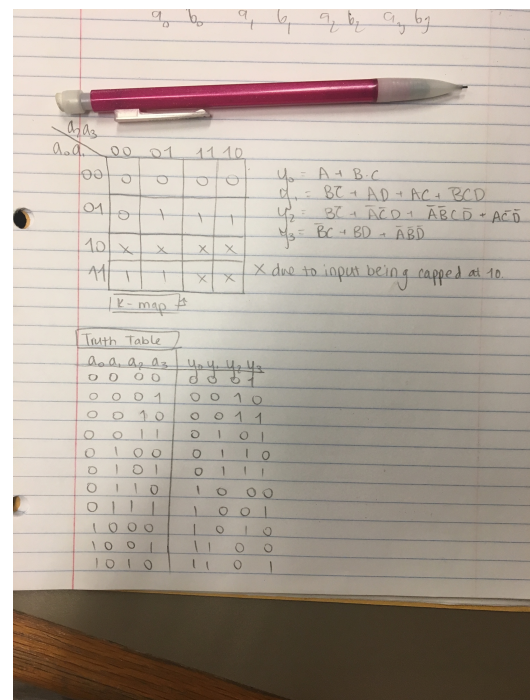 a₀ b₀ a₁ b₁ a₂ b₂ a₃ b₃
a₂a₃
a₀a₁ 00 01 11 10
00 0 0 0 0
01 0 1 1 1
10 x x x x
11 1 1 x x
K-map
y₀ = A + B·C
y₁ = BC̅ + AD + AC + B̅CD
y₂ = BC̅ + A̅C̅D + A̅B̅CD̅ + AC̅D̅
y₃ = B̅C + BD + A̅B̅D̅
X due to input being capped at 10
Truth Table
a₀ a₁ a₂ a₃ y₀ y₁ y₂ y₃
0 0 0 0 0 0 0 1
0 0 0 1 0 0 1 0
0 0 1 0 0 0 1 1
0 0 1 1 0 1 0 1
0 1 0 0 0 1 1 0
0 1 0 1 0 1 1 1
0 1 1 0 1 0 0 0
0 1 1 1 1 0 0 1
1 0 0 0 1 0 1 0
1 0 0 1 1 1 0 0
1 0 1 0 1 1 0 1